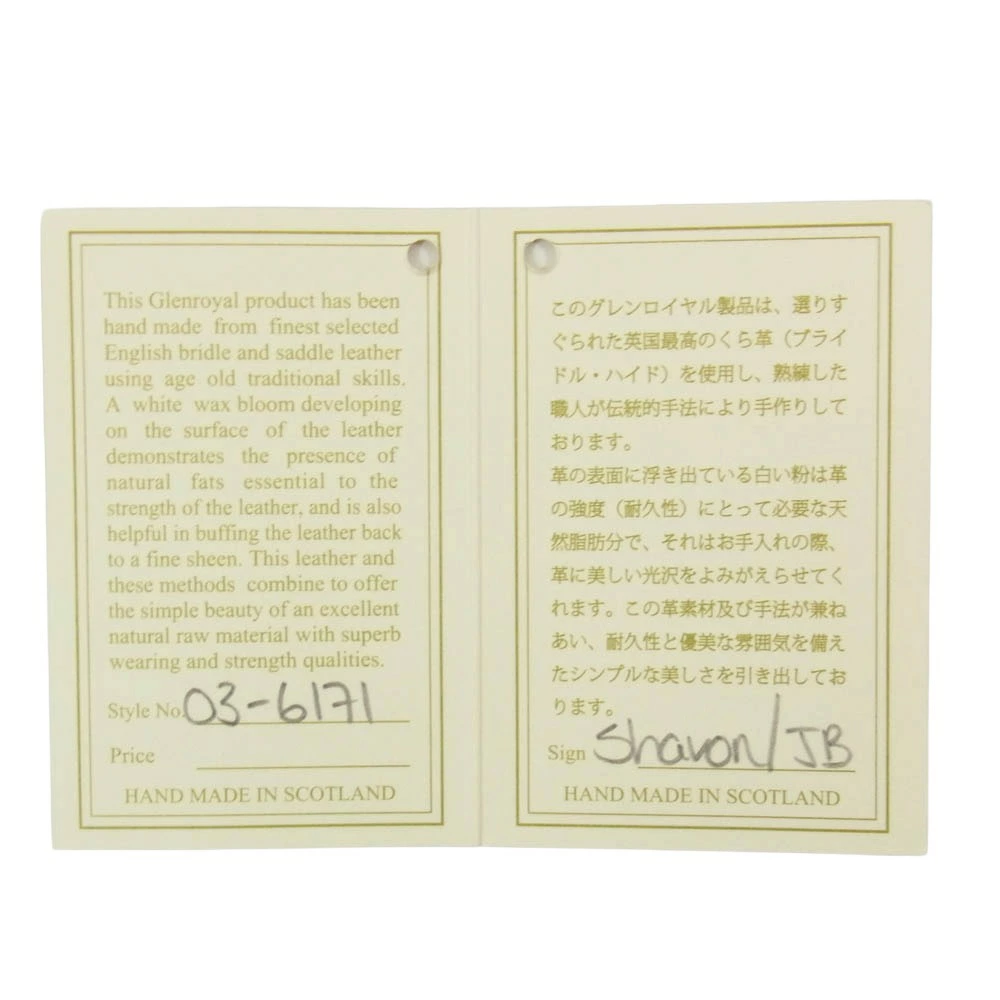 This Glenroyal product has been
hand made from finest selected
English bridle and saddle leather
using age old traditional skills.
A white wax bloom developing
on the surface of the leather
demonstrates the presence of
natural fats essential to the
strength of the leather, and is also
helpful in buffing the leather back
to a fine sheen. This leather and
these methods combine to offer
the simple beauty of an excellent
natural raw material with superb
wearing and strength qualities.
Style No. 03-6171
Price
HAND MADE IN SCOTLAND
このグレンロイヤル製品は、選りす
ぐられた英国最高のくら革（ブライ
ドル・ハイド）を使用し、熟練した
職人が伝統的手法により手作りして
おります。
革の表面に浮き出ている白い粉は革
の強度（耐久性）にとって必要な天
然脂肪分で、それはお手入れの際、
革に美しい光沢をよみがえらせてく
れます。この革素材及び手法が兼ね
あい、耐久性と優美な雰囲気を備え
たシンプルな美しさを引き出してお
ります。
Sign Sharon/JB
HAND MADE IN SCOTLAND